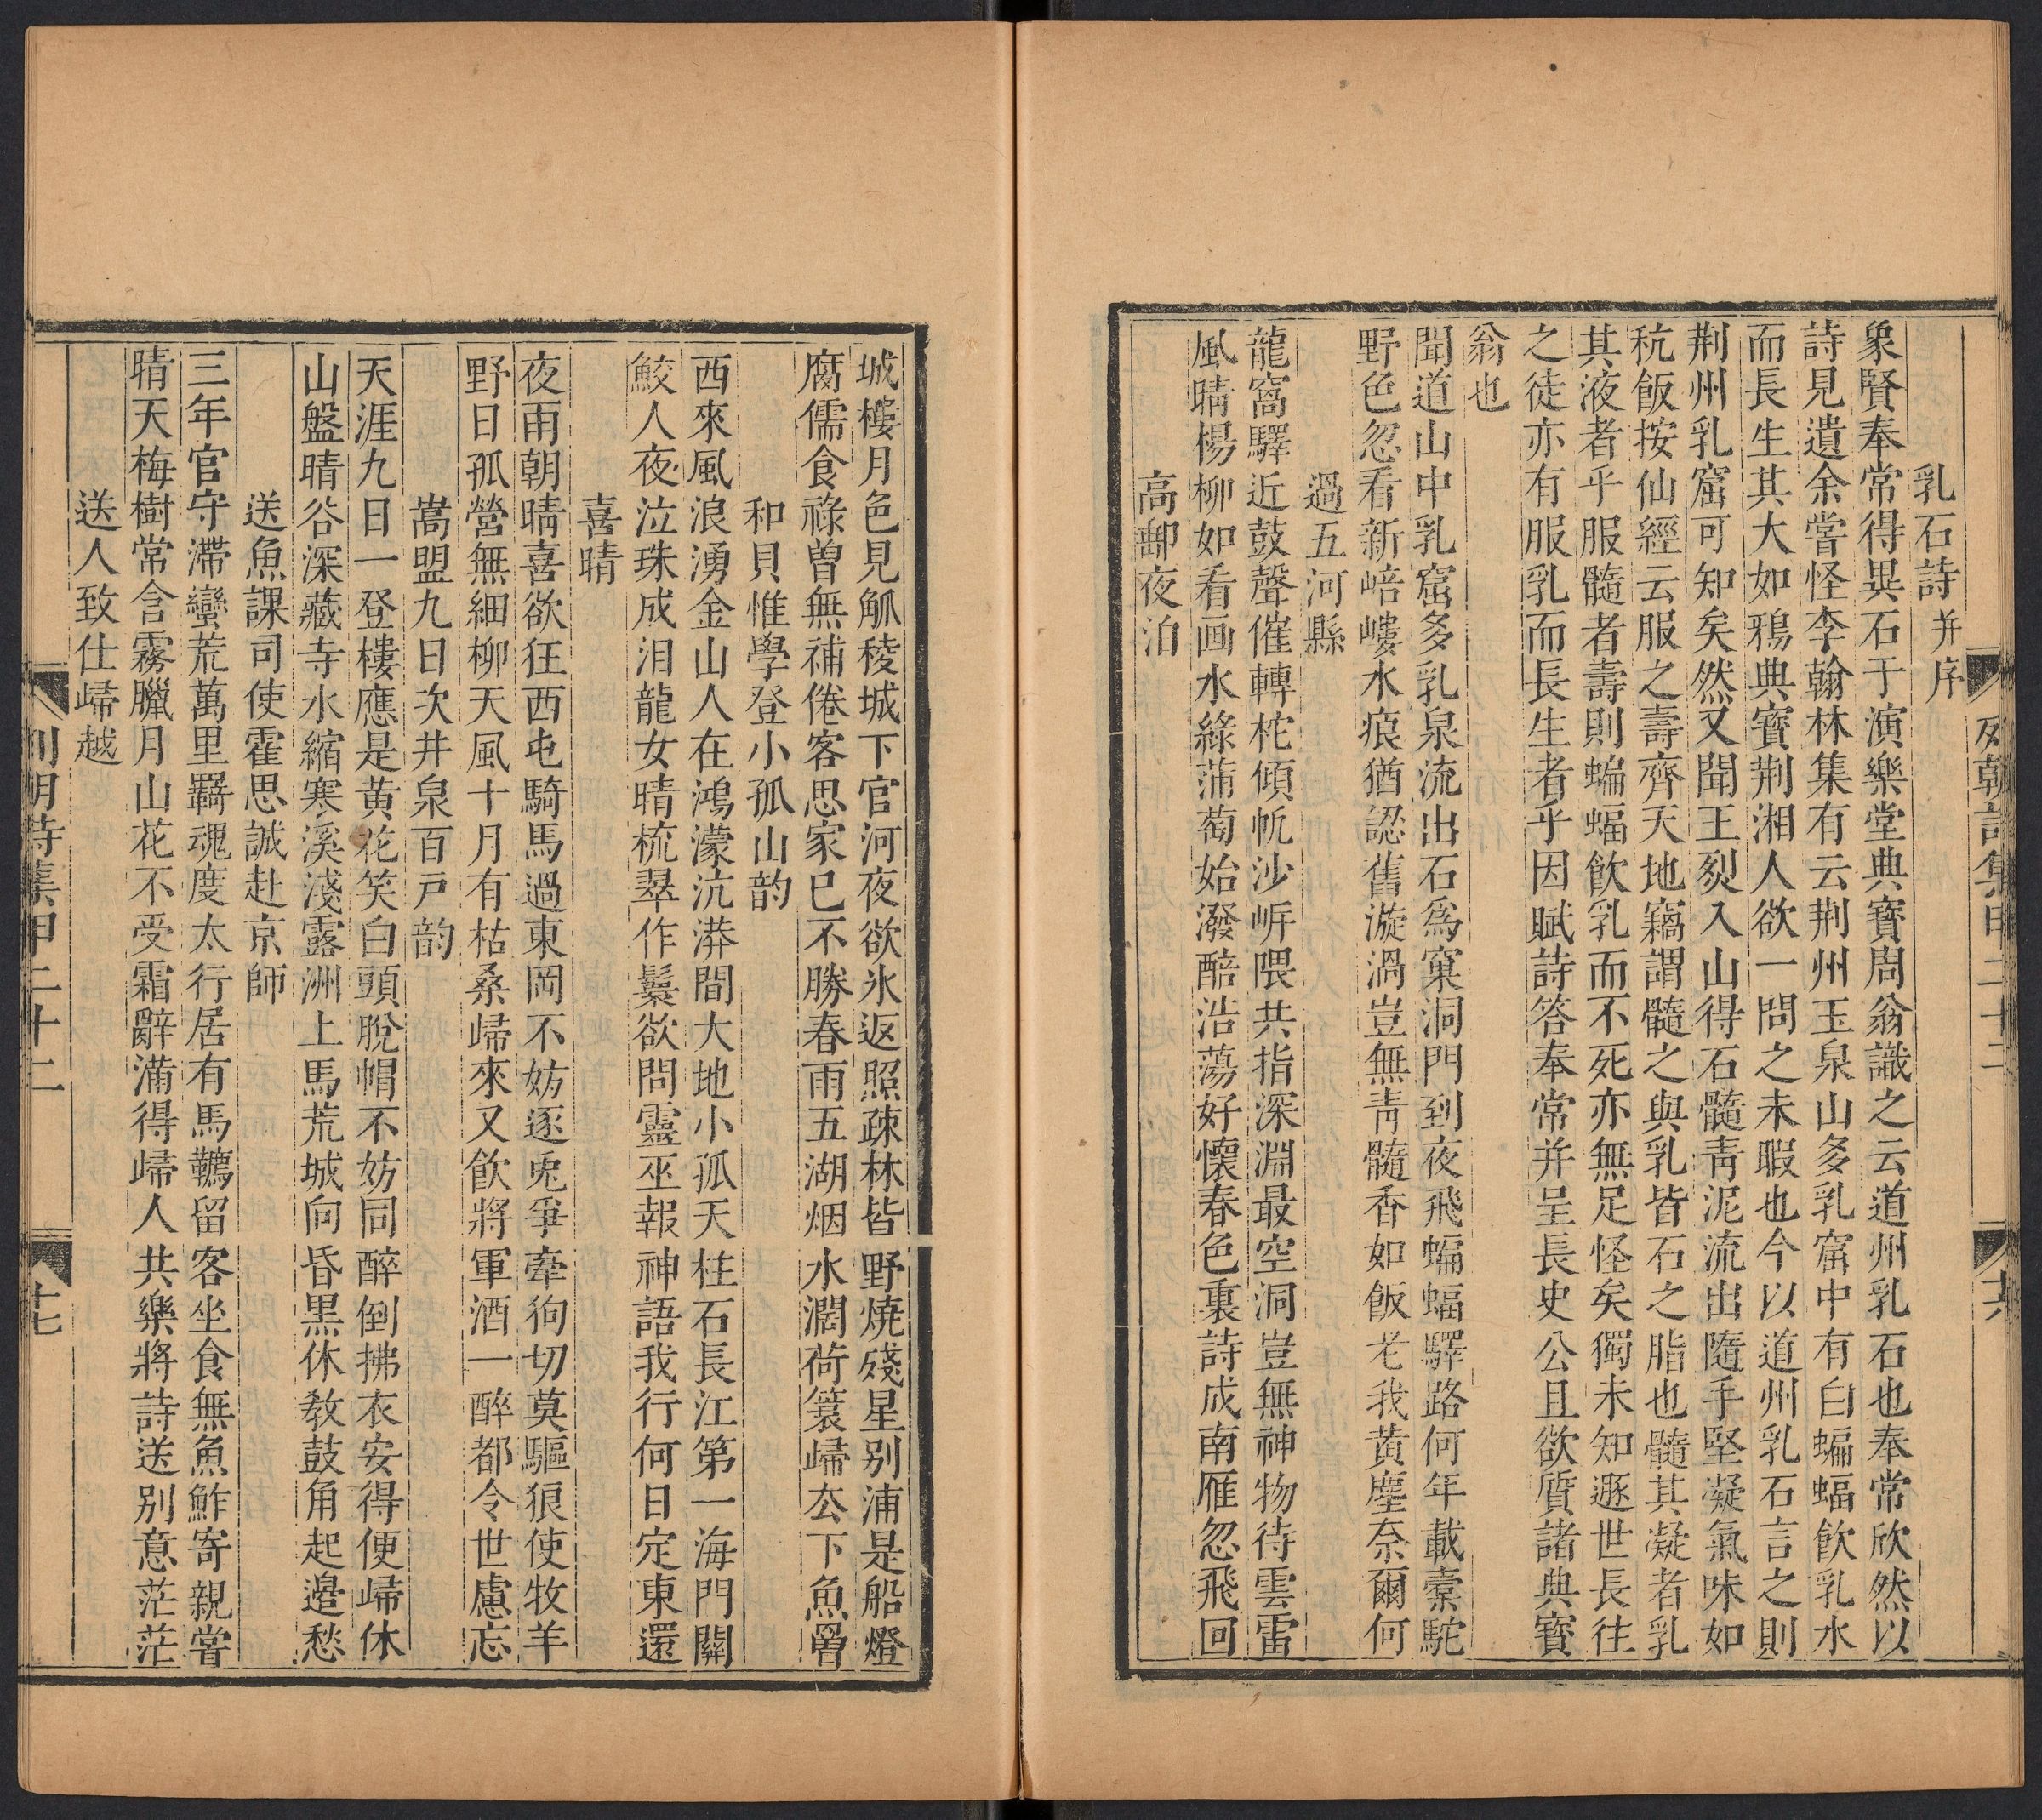 列朝詩集甲二十二
十六
乳石詩并序
象賢奉常得異石于演樂堂典寶周翁識之云道州乳石也奉常欣然以
詩見遺余嘗怪李翰林集有云荆州玉泉山多乳窟中有白蝙蝠飲乳水
而長生其大如鴉典寶荆湘人欲一問之未暇也今以道州乳石言之則
荆州乳窟可知矣然又聞王烈入山得石髓青泥流出隨手堅凝氣味如
秔飯按仙經云服之壽齊天地竊謂髓之與乳皆石之脂也髓其凝者乳
其液者乎服髓者壽則蝙蝠飲乳而不死亦無足怪矣獨未知遯世長往
之徒亦有服乳而長生者乎因賦詩答奉常并呈長史公且欲質諸典寶
翁也
聞道山中乳窟多乳泉流出石爲窠洞門到夜飛蝙蝠驛路何年載橐駝
野色忽看新㟝嶁水痕猶認舊漩渦豈無靑髓香如飯老我黄塵奈爾何
過五河縣
龍窩驛近鼓聲催轉柁傾帆沙㟁隈共指深淵最空洞豈無神物待雲雷
風晴楊柳如看画水綠蒲萄始潑醅浩蕩好懷春色裏詩成南雁忽飛回
高郵夜泊
城樓月色見觚稜城下官河夜欲氷返照疎林皆野燒殘星别浦是船燈
腐儒食祿曾無補倦客思家已不勝春雨五湖烟水濶荷簑歸厺下魚罾
和貝惟學登小孤山韵
西來風浪湧金山人在鴻濛沆漭間大地小孤天柱石長江第一海門關
鮫人夜泣珠成泪龍女晴梳翠作鬟欲問靈巫報神語我行何日定東還
喜晴
夜雨朝晴喜欲狂西屯騎馬過東岡不妨逐兎爭牽狗切莫驅狼使牧羊
野日孤營無細柳天風十月有枯桑歸來又飮將軍酒一醉都令世慮忘
嵩盟九日次井泉百戸韵
天涯九日一登樓應是黄花笑白頭脫帽不妨同醉倒拂衣安得便歸休
山盤晴谷深藏寺水縮寒溪淺露洲上馬荒城向昏黒休敎鼓角起邊愁
送魚課司使霍思誠赴京師
三年官守滯蠻荒萬里羇魂度太行居有馬韉留客坐食無魚鮓寄親嘗
晴天梅樹常含霧臘月山花不受霜辭滿得歸人共樂將詩送别意茫茫
送人致仕歸越
列朝詩集甲二十二
十七